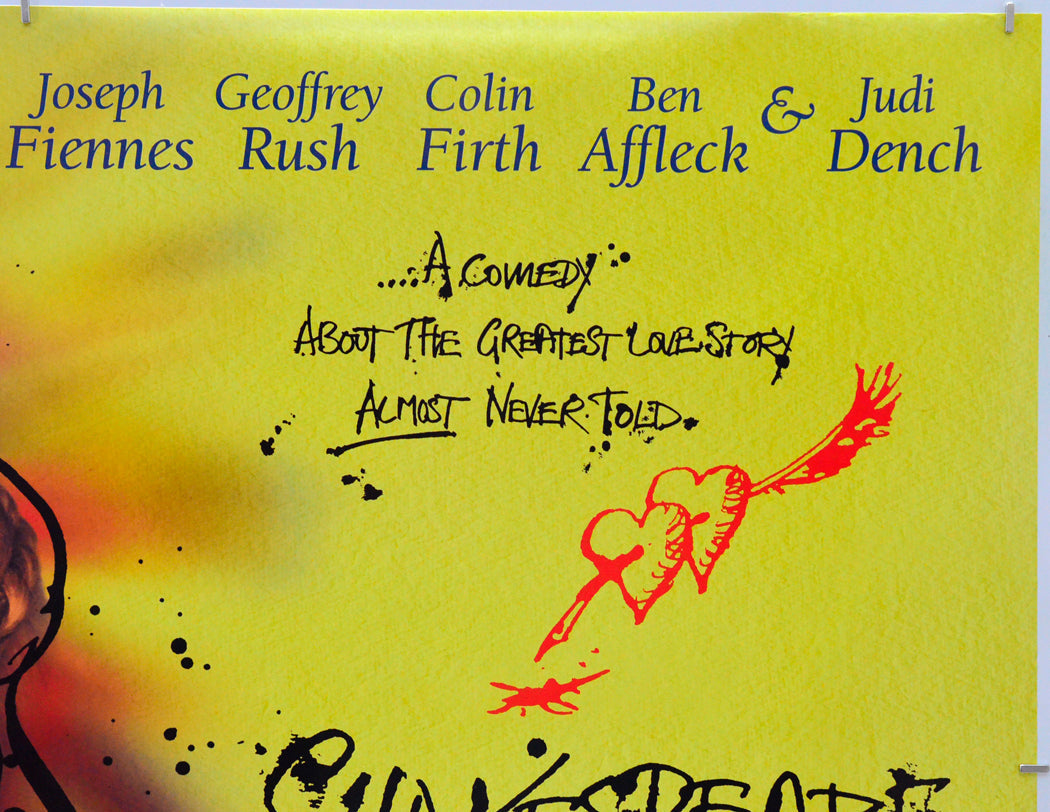 Joseph Geoffrey Colin Ben & Judi
Fiennes Rush Firth Affleck Dench
....A COMEDY
ABOUT THE GREATEST LOVE STORY
ALMOST NEVER TOLD.
SHAKESPEARE